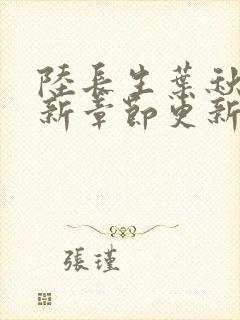 陸長生葉秋
新章節更新
張瑾